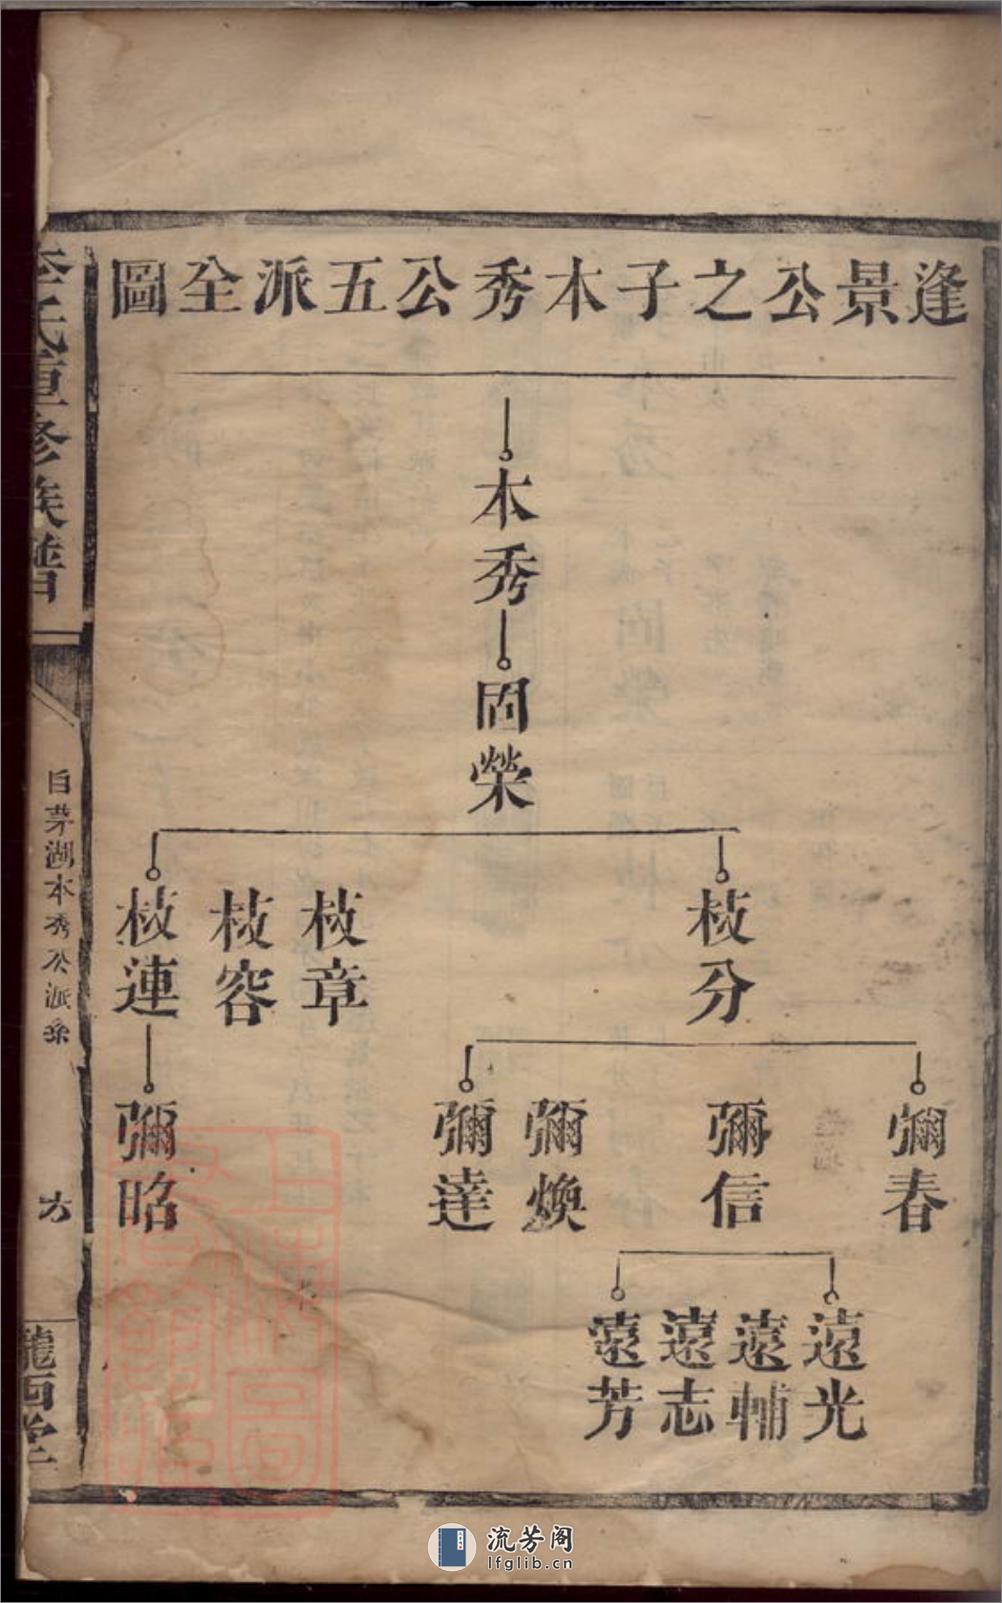 逢景公之子木秀公五派全圖
木秀
固榮
枝分
枝章
枝容
枝連
彌春
彌信
彌煥
彌達
彌昭
遠光
遠輔
遠志
遠芳
李氏重修族譜
自茅湖木秀公派系
六
隴西堂
流芳阁
lfglib.cn